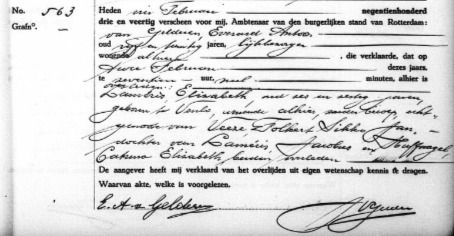 No. 563
Grafno. —
Heden vier Februari negentienhonderd
drie en veertig verscheen voor mij, Ambtenaar van den burgerlijken stand van Rotterdam:
van Gelderen, Evenard Antoon
oud vijf en twintig jaren,
wonende alhier, die verklaarde, dat op
twee Februari dezes jaars,
te zeventien uur, nul minuten, alhier is
overleden:
Lambriex, Elisabeth, oud zes en zestig jaren,
geboren te Venlo, wonende alhier, zonder beroep, echt-
genoote van Folkert Sikko Jan,
dochter van Jacobus en
Elisabeth, beiden overleden
De aangever heeft mij verklaard van het overlijden uit eigen wetenschap kennis te dragen.
Waarvan akte, welke is voorgelezen.
E. A. v Gelderen